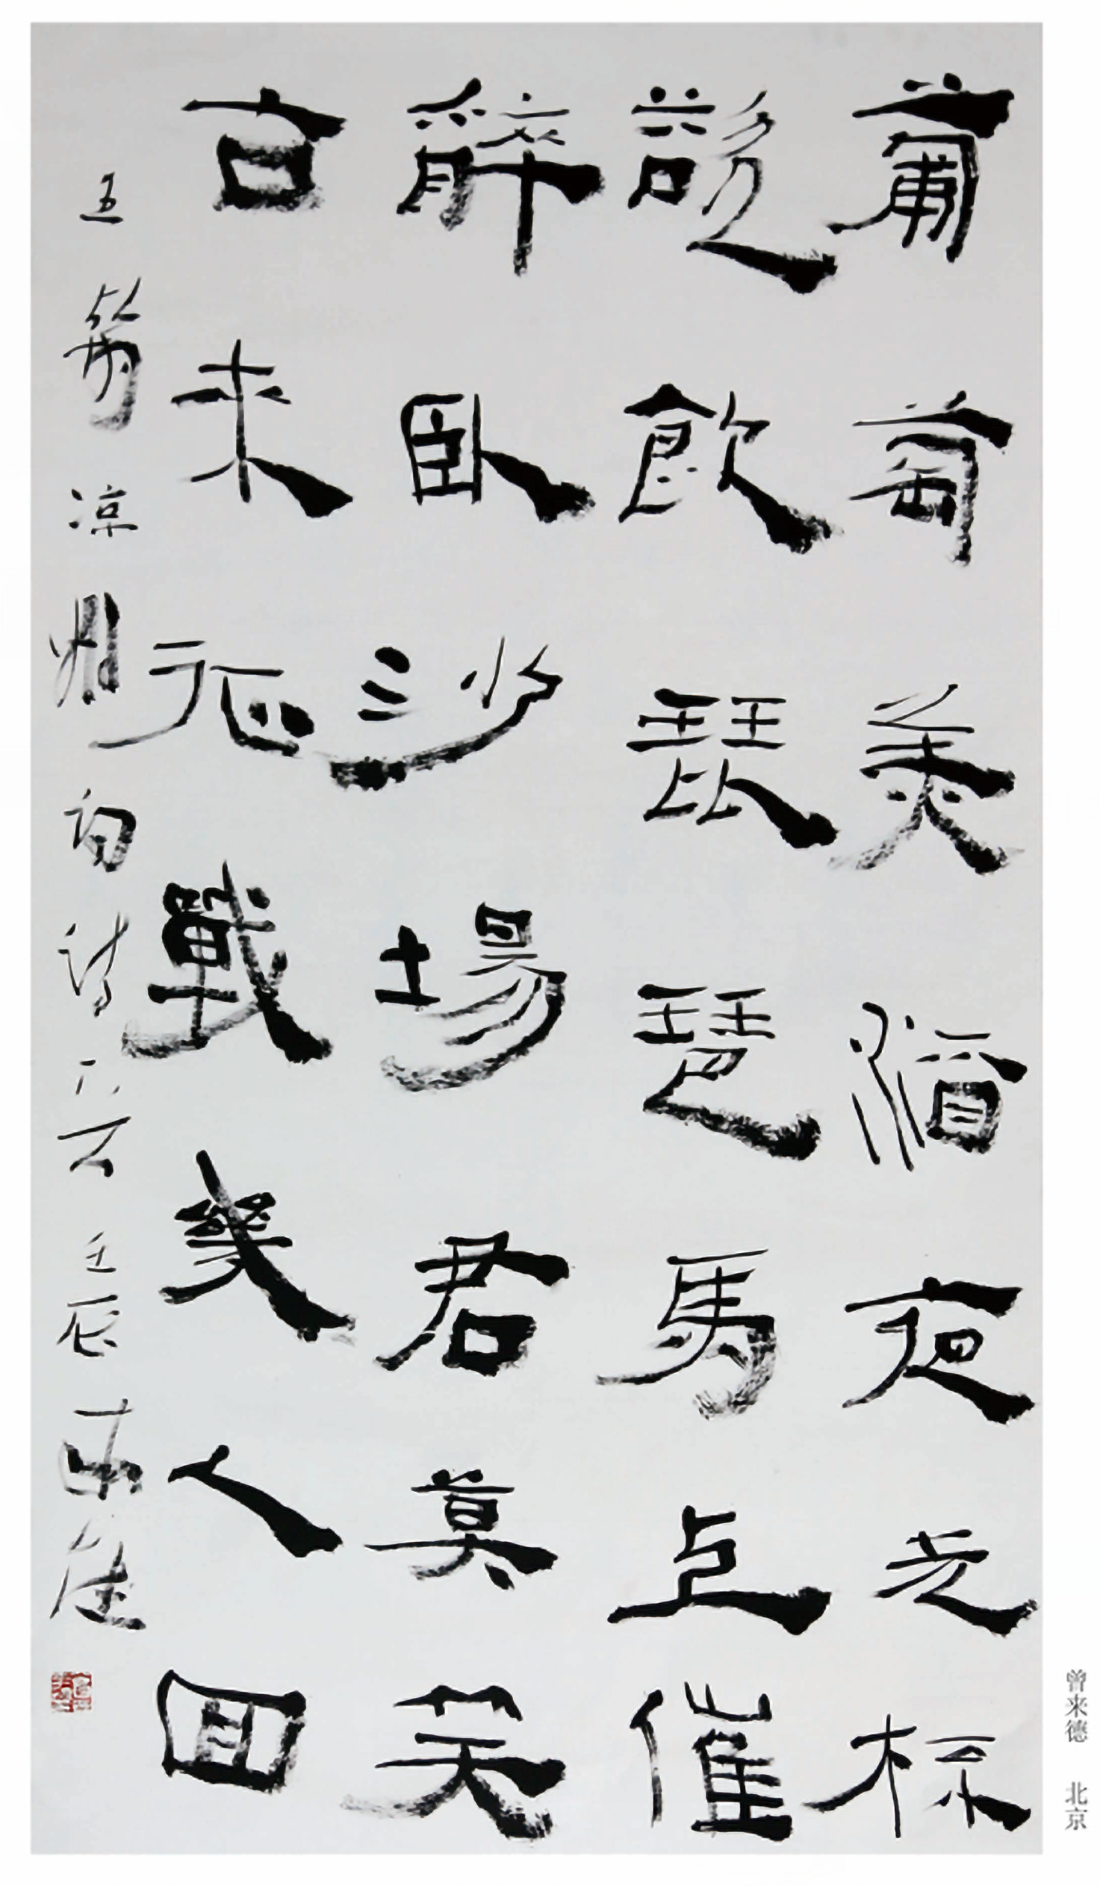 葡萄美酒夜光杯
欲飲琵琶馬上催
醉卧沙場君莫笑
古来征戰幾人回
王翰凉州詞詩一首壬辰来德
曾来德 北京